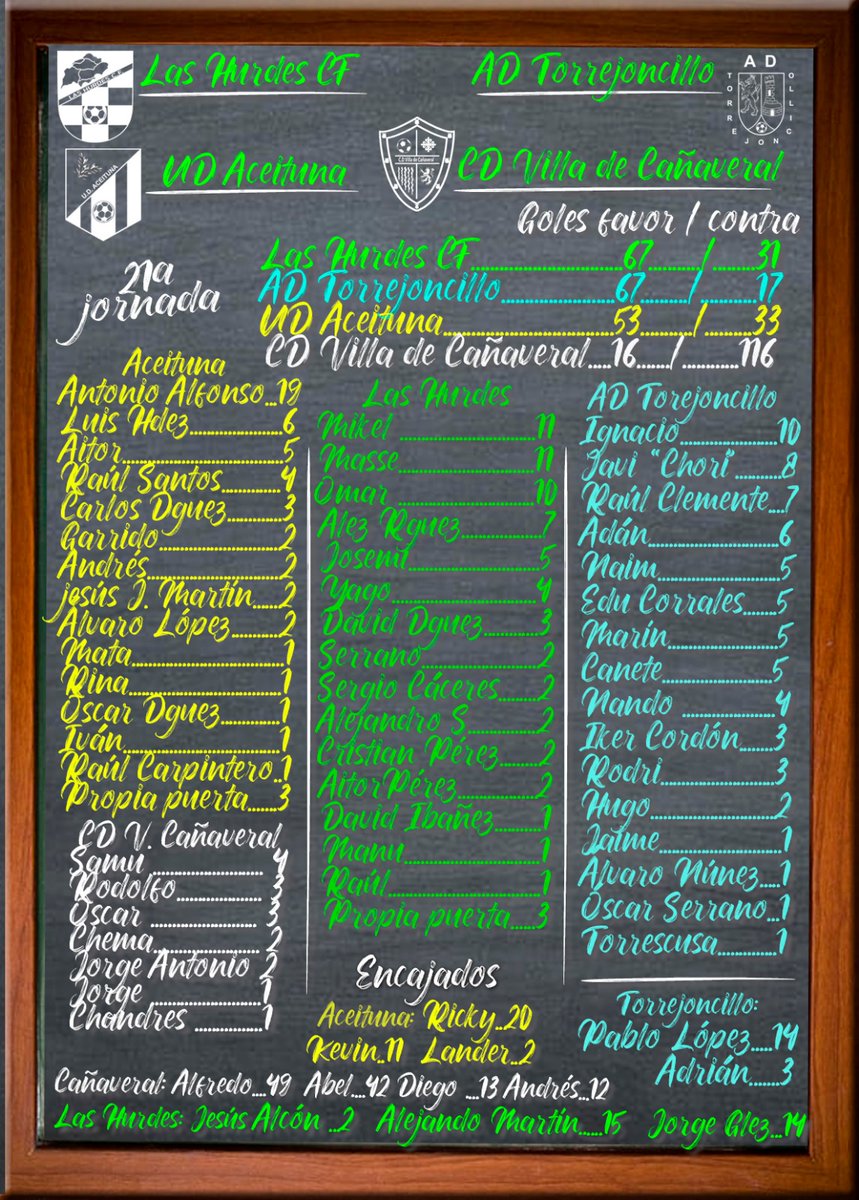 Las Hurdes CF
AD Torrejoncillo
AD
TORREJONCILLO
LAS HURDES C.F.
UD Aceituna
CD Villa de Cañaveral
U.D. ACEITUNA
C.D Villa de Cañaveral
Goles favor / contra
21ª
jornada
Las Hurdes CF......67....../......31
AD Torrejoncillo......67....../......17
UD Aceituna......53....../......33
CD Villa de Cañaveral....16....../......116
Aceituna
Antonio Alfonso...19
Luis Hdez......6
Aitor......5
Raúl Santos......4
Carlos Dguez......3
Garrido......2
Andrés......2
jesús J. Martín.....2
Álvaro López......2
Mata......1
Rina......1
Óscar Dguez......1
Iván......1
Raúl Carpintero..1
Propia puerta.....3
CD V. Cañaveral
Samu ...... 4
Rodolfo...... 3
Óscar ...... 3
Chema...... 2
Jorge Antonio 2
Jorge ......1
Chandres ......1
Las Hurdes
Mikel ......11
Masse......11
Omar ......10
Alez Rguez......7
Josemi......5
Yago......4
David Dguez......3
Serrano......2
Sergio Cáceres.....2
Alejandro S......2
Cristian Pérez.....2
AitorPérez......2
David Ibañez......1
Manu......1
Raúl......1
Propia puerta.....3
AD Torejoncillo
Ignacio......10
Javi "Chori"......8
Raúl Clemente...7
Adán......6
Naim......5
Edu Corrales.....5
Marín......5
Canete......5
Nando ......4
Iker Cordón.....3
Rodri......3
Hugo......2
Jaime......1
Álvaro Núnez....1
Óscar Serrano..1
Torrescusa......1
Encajados
Aceituna: Ricky..20
Kevin..11 Lander..2
Torrejoncillo:
Pablo López....14
Adrián.....3
Cañaveral: Alfredo....49 Abel....42 Diego ...13 Andrés...12
Las Hurdes: Jesús Alcón ..2 Alejando Martín......15 Jorge Glez...14